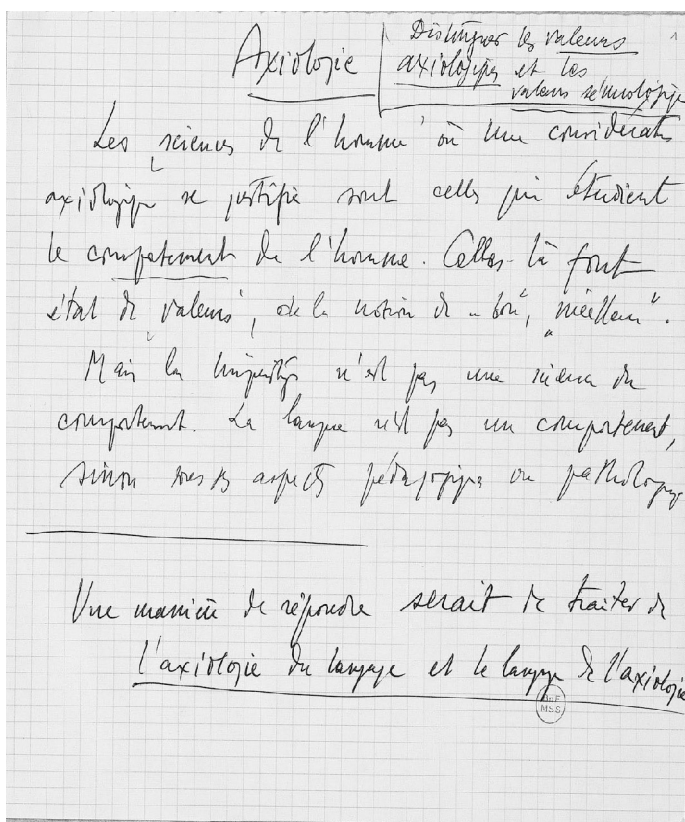 Axiologie
Distinguer les valeurs
axiologiques et les
valeurs sémiologiques
Les "sciences de l'homme" où une considération
axiologique se justifie sont celles qui étudient
le comportement de l'homme. Celles-là font
état de "valeurs", de la notion de "bon", "meilleur".
Mais la linguistique n'est pas une science du
comportement. La langue n'est pas un comportement,
sinon sous ses aspects pédagogique ou pathologique
Une manière de répondre serait de traiter de
l'axiologie du langage et le langage de l'axiologie
BnF
MSS